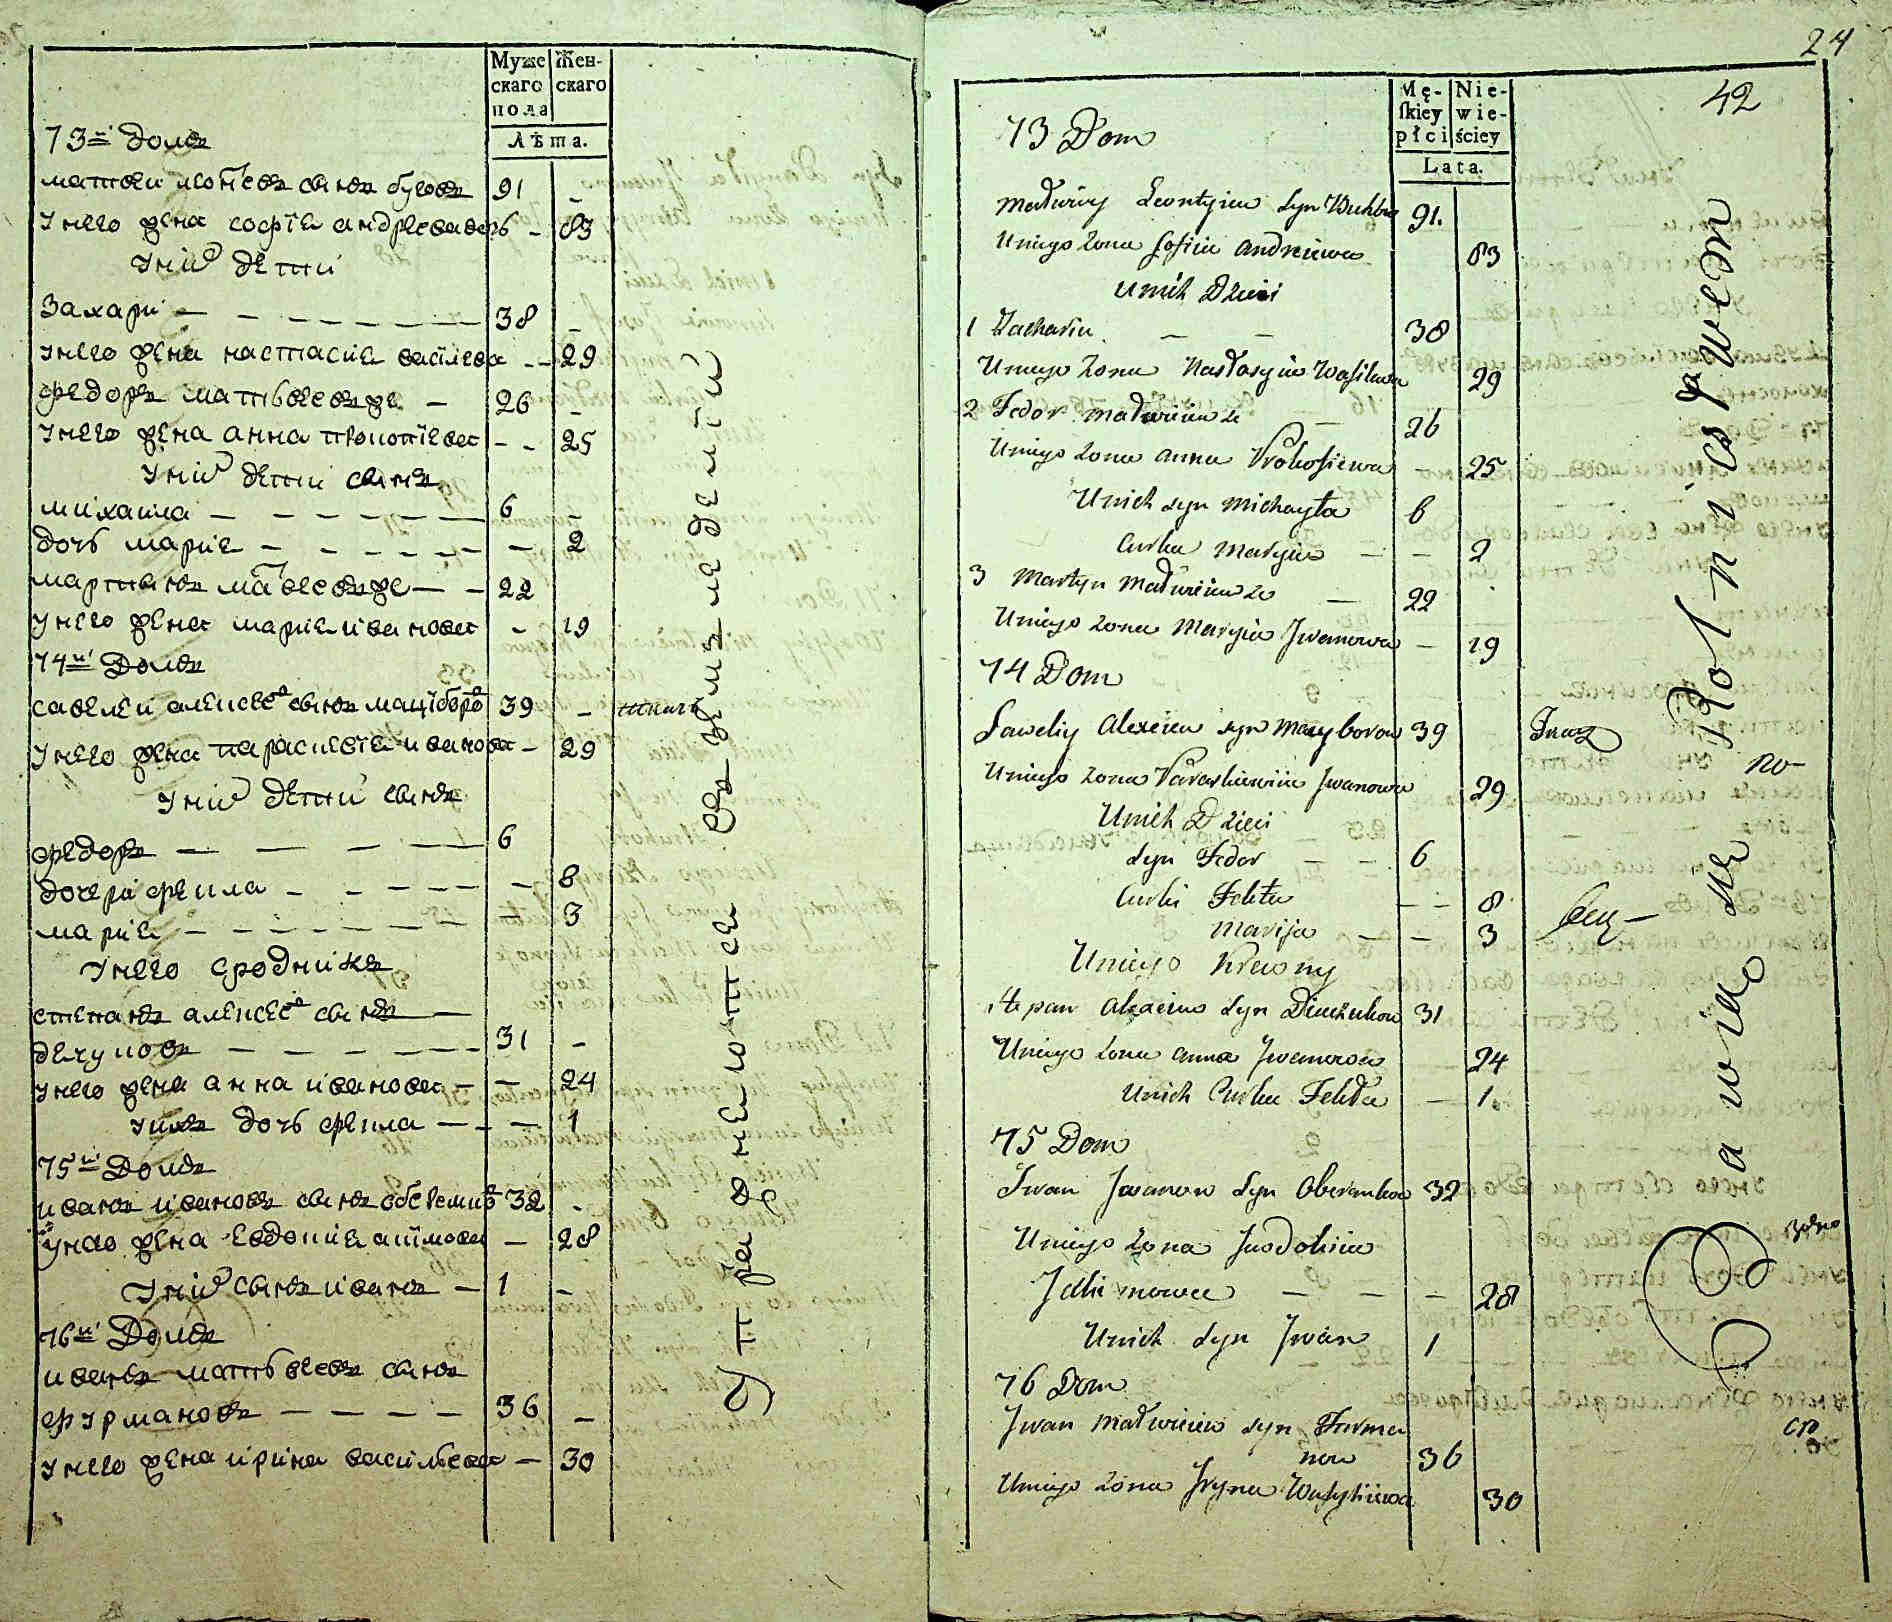 Муже
скаго
пола
Жен-
скаго
Лѣта.
73й домъ
матвеи леонтевъ сынъ буговъ 91 –
у него жена софія андреева дочь – 83
у них дети
Захари – 38 –
у него жена настасия василева – 29
федоръ матьвеевъ же – 26 –
у него жена анна прокопиева – 25
у них дети сынъ
михаила – 6 –
дочь мария – 2
мартынъ матвеевъ же – 22
у него жена мария иванова – 19
74й Домъ
савелеи алексеевъ сынъ мацібора 39 –
у него жена парасковея иванова – 29
у них дети сынъ
федоръ – 6
дочери фекла – 8
мария – 3
у него сродникъ
степанъ алексеевъ сынъ
31 –
у него жена анна иванова – 24
у них дочь фекла – 1
75й Домъ
иванъ ивановъ сынъ 32 –
у него жена евдокия акимова – 28
у них сынъ иванъ – 1 –
76й Домъ
иванъ матьвеевъ сынъ
фурмановъ – 36 –
у него жена ирина васильева – 30
упражнеются въ земледелии
24
42
Mę-
skiey
płci
Nie-
wie-
ściey
Lata.
73 Dom
Matwiey Leontyiew Syn 91.
U niego Zona Sofiia Andreiewa 83
U nich Dzieci
1 Zacharia – – 38
U niego Zona Nastasyia Wasilewa 29
2 Fedor Matwieiew ze – 26
U niego Zona Anna Prokofiewa – 25
U nich Syn Michayła 6
Curka Maryia – – 2
3 Martyn Matwieiew ze – 22
U niego Zona Maryia Iwanowa – 19
74 Dom
Saweliy Alexeiew Syn Macyborow 39
U niego Zona Paraskiewiia Iwanowa 29
U nich Dzieci
Syn Fedor – – 6
Curki Fekła – – 8
Marija – – 3
U niego Krewny
Stepan Alexeiew Syn 31
U niego Zona Anna Iwanowa 24
U nich Curka Fekła – 1.
75 Dom
Iwan Iwanow Syn 32
U niego Zona Jwdokiia
Jakimowa – – – 28
U nich Syn Iwan 1
76 Dom
Iwan Matwieiew Syn Furma
now 36
U niego Zona Iryna Wasyliewa 30
Bawią się Rolnictwem